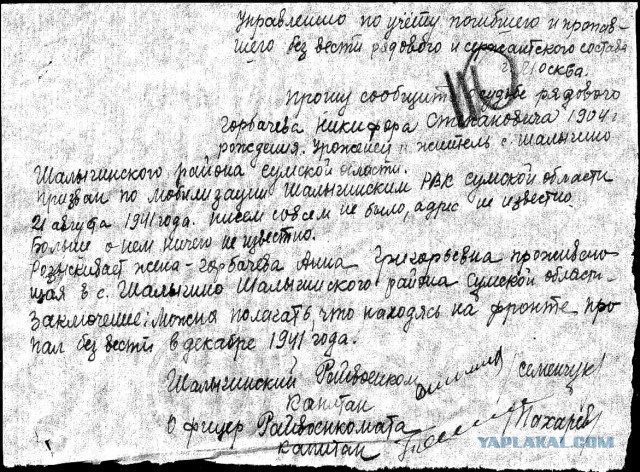 Управлению по учёту погибшего и пропав-
шего без вести рядового и сержантского состава
г. Москва.
Прошу сообщить о судьбе рядового
Горбачева Никифора Степановича 1904 г
рождения. Уроженец и житель с. Шалыгино
Шалыгинского района Сумской области.
Призван по мобилизации Шалыгинским РВК Сумской области
21 августа 1941 года. Писем совсем не было, адрес не известно.
Больше о нем ничего не известно.
Розыскивает жена - Горбачева Анна Григорьевна проживаю-
щая в с. Шалыгино Шалыгинского района Сумской области.
Заключение: Можна полагать, что находясь на фронте про
пал без вести в декабре 1941 года.
Шалыгинский Райвоенком /Семенчук/
капитан
Офицер Райвоенкомата /Пахарев/
капитан
YAPLAKAL.COM